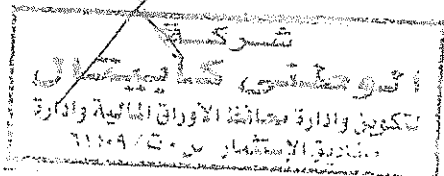 شركة
الوطني كابيتال
لتكوين وادارة محافظ الأوراق المالية وادارة
صناديق الإستثمار س٠ت/ ٦١١٠٩